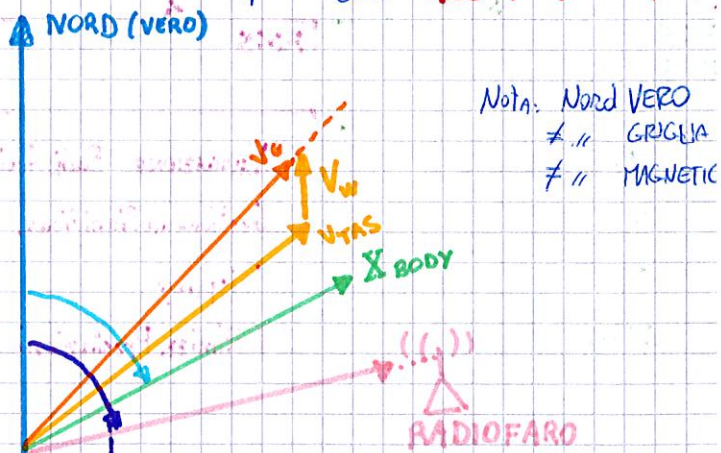 NORD (VERO)
Nota: Nord VERO
≠ " GRIGLIA
≠ " MAGNETIC
VW
VTAS
X BODY
((( )))
RADIOFARO